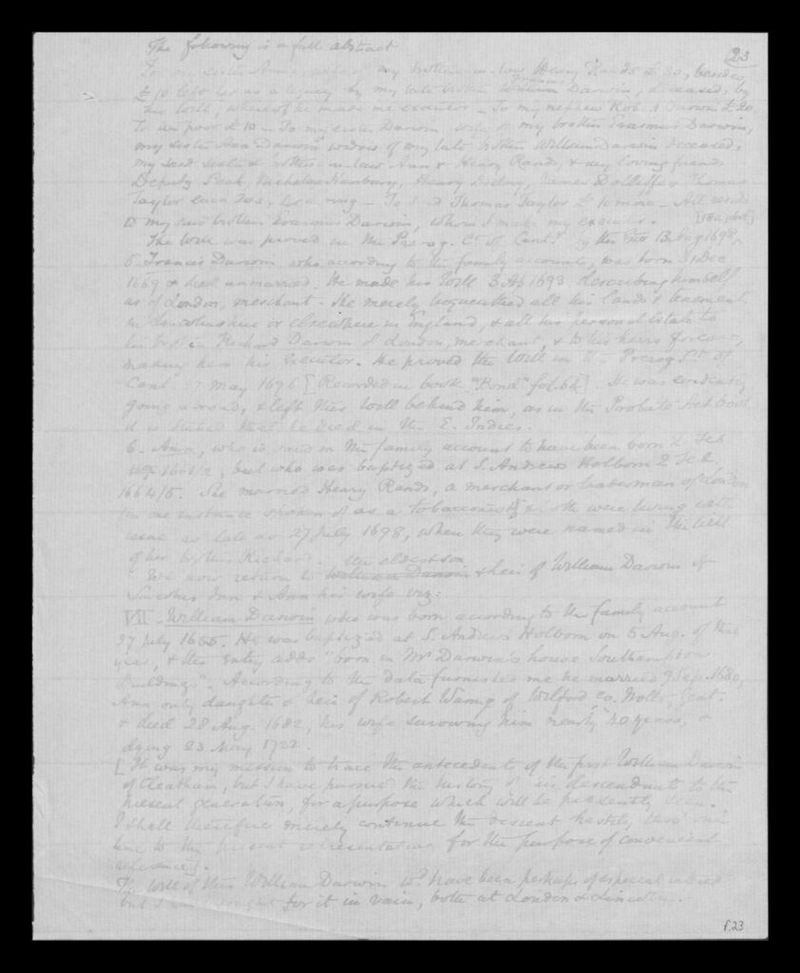 23
The following is a full abstract
my brother in law Henry Rands £20, besides
£10 left her as a legacy by my late brother William Darwin, deceased, by
his will, whereof he made me executor - To my nephew Rob. Darwin £20.
To poor £10 - To my sister Darwin, wife of my brother Erasmus Darwin,
my sister Ann Darwin widow of my late brother William Darwin deceased,
my said sister & brother in law Ann & Henry Rands, & my loving friends
Deputy Peck, Nicholas Hanbury, Henry James Thomas
Taylor each 20s. for a ring - To Thomas Taylor £10 more - All residue
to my said brother Erasmus Darwin, whom I make my executor.
The Will was proved in the Prerog. Ct. of Cant. by the Exor 13 Aug 1698.
5. Francis Darwin who according to the family accounts, was born 31 Dec
1669 & died unmarried. He made his Will 3 Ap 1693 describing himself
as of London, merchant. He merely bequeathed all his lands & tenements
in Lincolnshire or elsewhere in England, & all his personal Estate to
his brother Richard Darwin of London, merchant, & to his heirs forever,
making him his Executor. He proved the Will in the Prerog. Ct. of
Cant. 27 May 1696 [Recorded in book "Bond" fol. 62]. He was evidently
going abroad, & left this Will behind him, as in the Probate Act Book
it is stated that he died in the E. Indies.
6. Ann, who is said in the family account to have been born 2 Feb
1661/2, but who was baptized at S. Andrews Holborn 2 Feb.
1664/5. She married Henry Rands, a merchant or haberdasher of London
(in one instance spoken of as a tobacconist) & both were living with
issue as late as 27 July 1698, when they were named in the Will
of her brother Richard.
We now return to the eldest son & heir of William Darwin of
Lincolns Inn & Ann his wife viz:
VII. William Darwin who was born according to the family account
27 July 1655. He was baptized at S. Andrews Holborn on 5 Aug. of that
year, & the entry adds "born in Mr Darwin's house Southampton
Buildings". According to the data furnished me he married 9 Sep. 1680,
Ann only daughter & heir of Robert Waring of Wilford, co. Notts, Gent.
& died 28 Aug. 1682, his wife surviving him nearly 40 years, &
dying 23 May 1722.
[It was my mission to trace the antecedents of the first William Darwin
of Cleatham, but I have pursued the history of his descendants to the
present generation, for a purpose which will be presently seen.
I shall therefore merely continue the descent hastily,
line to the present representative for the purpose of convenient
reference].
The Will of this William Darwin wd. have been perhaps of especial interest
but I have sought for it in vain, both at London & Lincoln.
f.23